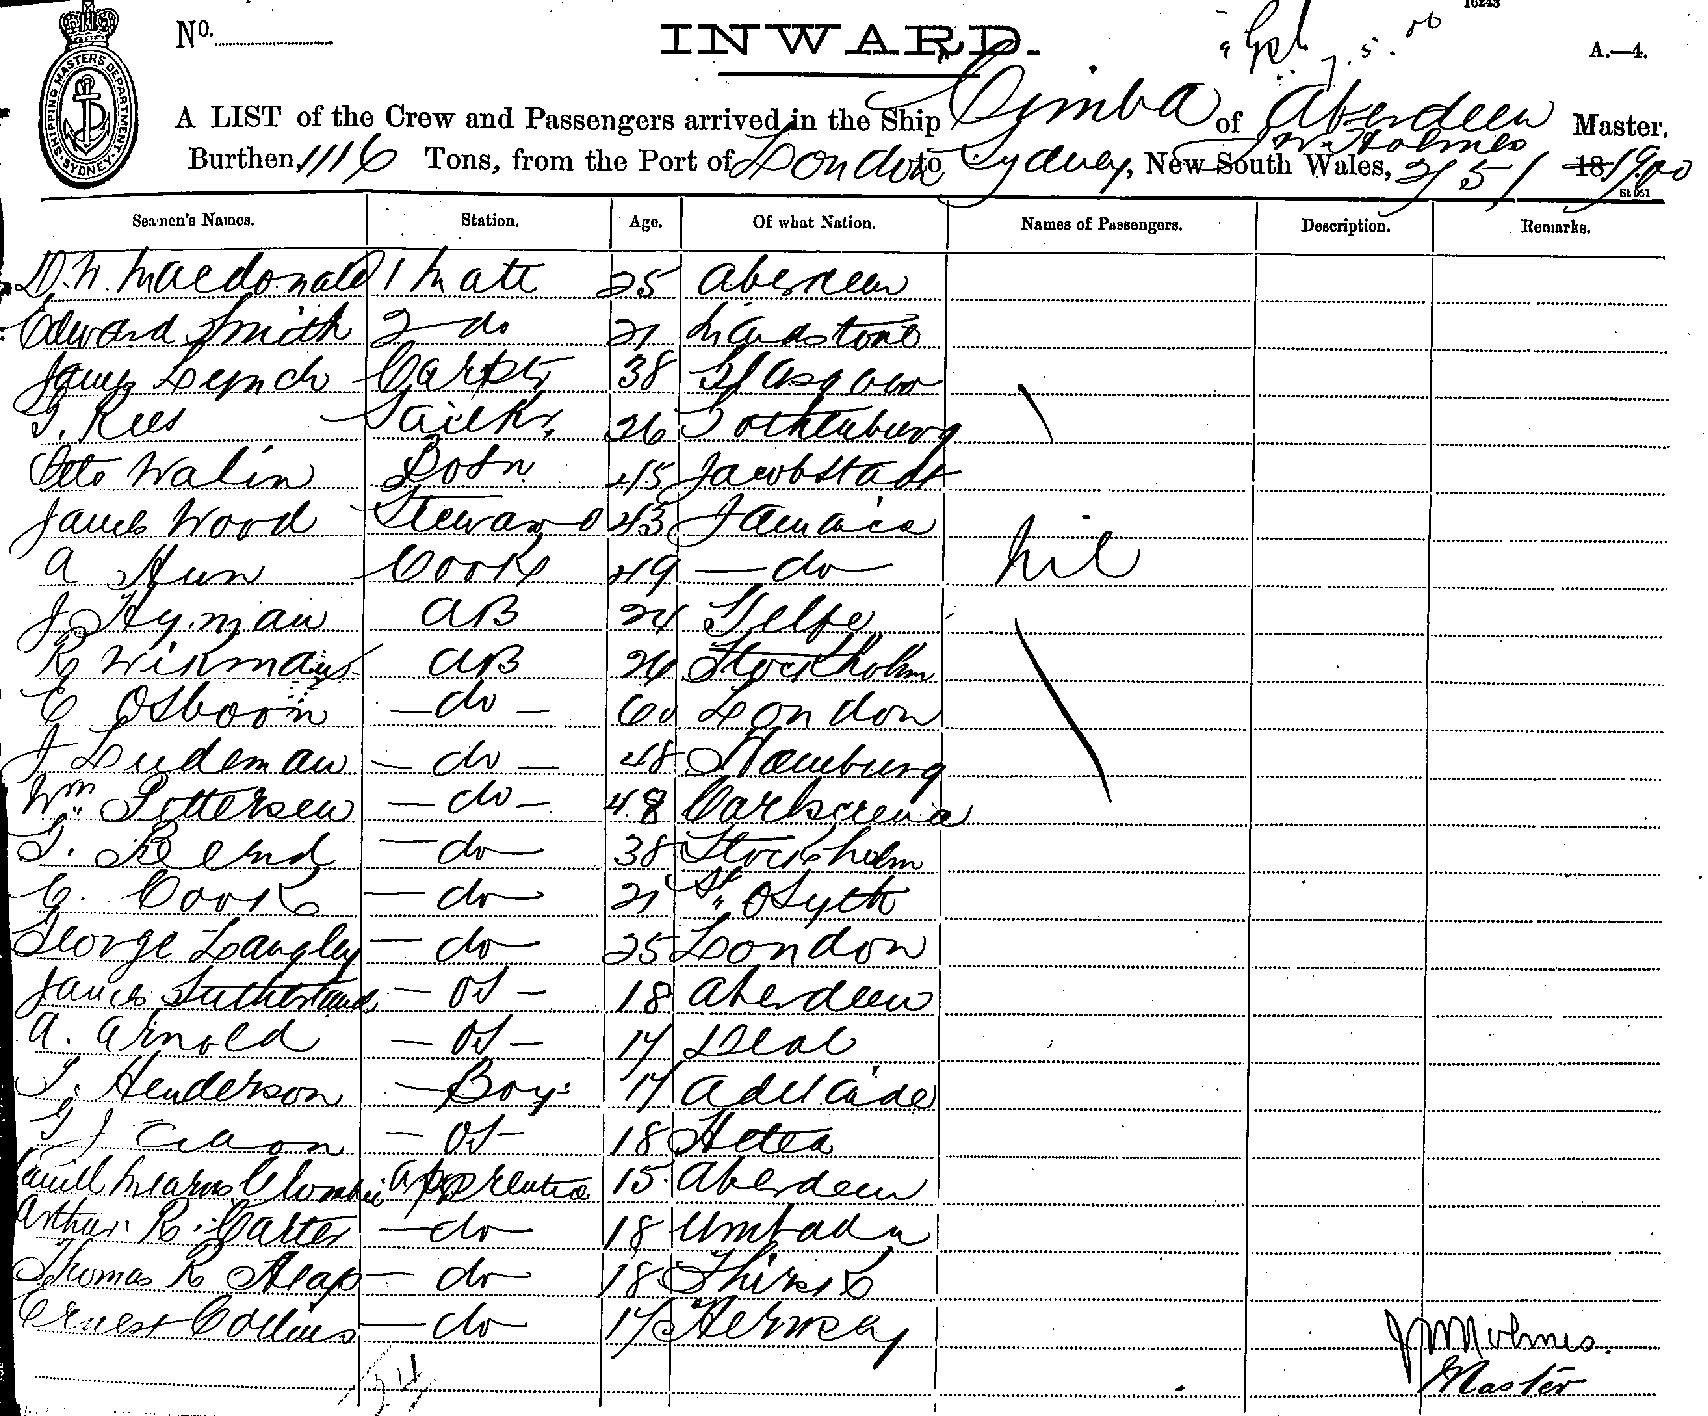 16243
No.
INWARD.
A.—4.
SHIPPING MASTERS DEPARTMENT SYDNEY
A LIST of the Crew and Passengers arrived in the Ship Cimba of Aberdeen Master,
J W Holmes
Burthen, 1116 Tons, from the Port of London to Sydney, New South Wales, 2/5/ 18 1900
Seamen's Names. Station. Age. Of what Nation. Names of Passengers. Description. Remarks.
D. N. Macdonald 1 Mate 25 Aberdeen
Edward Smith 2 do 21 Maidstone
James Lynch Carptr 38 Glasgow
Rees Sailkr 26 Gothenburg
Otto Walin Bosn 45 Jacobstadt
James Wood Steward 43 Jamaica
A Hun Cook 49 — do — nil
J Hyman AB 24
R Wikmans AB 26 Stockholm
C Osborn — do — 60 London
J Ludeman — do — 48 Hamburg
Wm. Pottersen — do — 48 Carlscrona
— do — 38 Stockholm
C. Cook — do — 21 St. Osyth
George Langley — do — 25 London
James Sutherland — OS — 18 Aberdeen
A. Arnold — OS — 17 Deal
T. Henderson — Boy: 17 Adelaide
— OS — 18
Clombie Apprentice 15 Aberdeen
Arthur R. Carter — do — 18
Thomas R Heap — do — 18 Thirsk
Ernest Collins — do — 17
J W Holmes.
Master